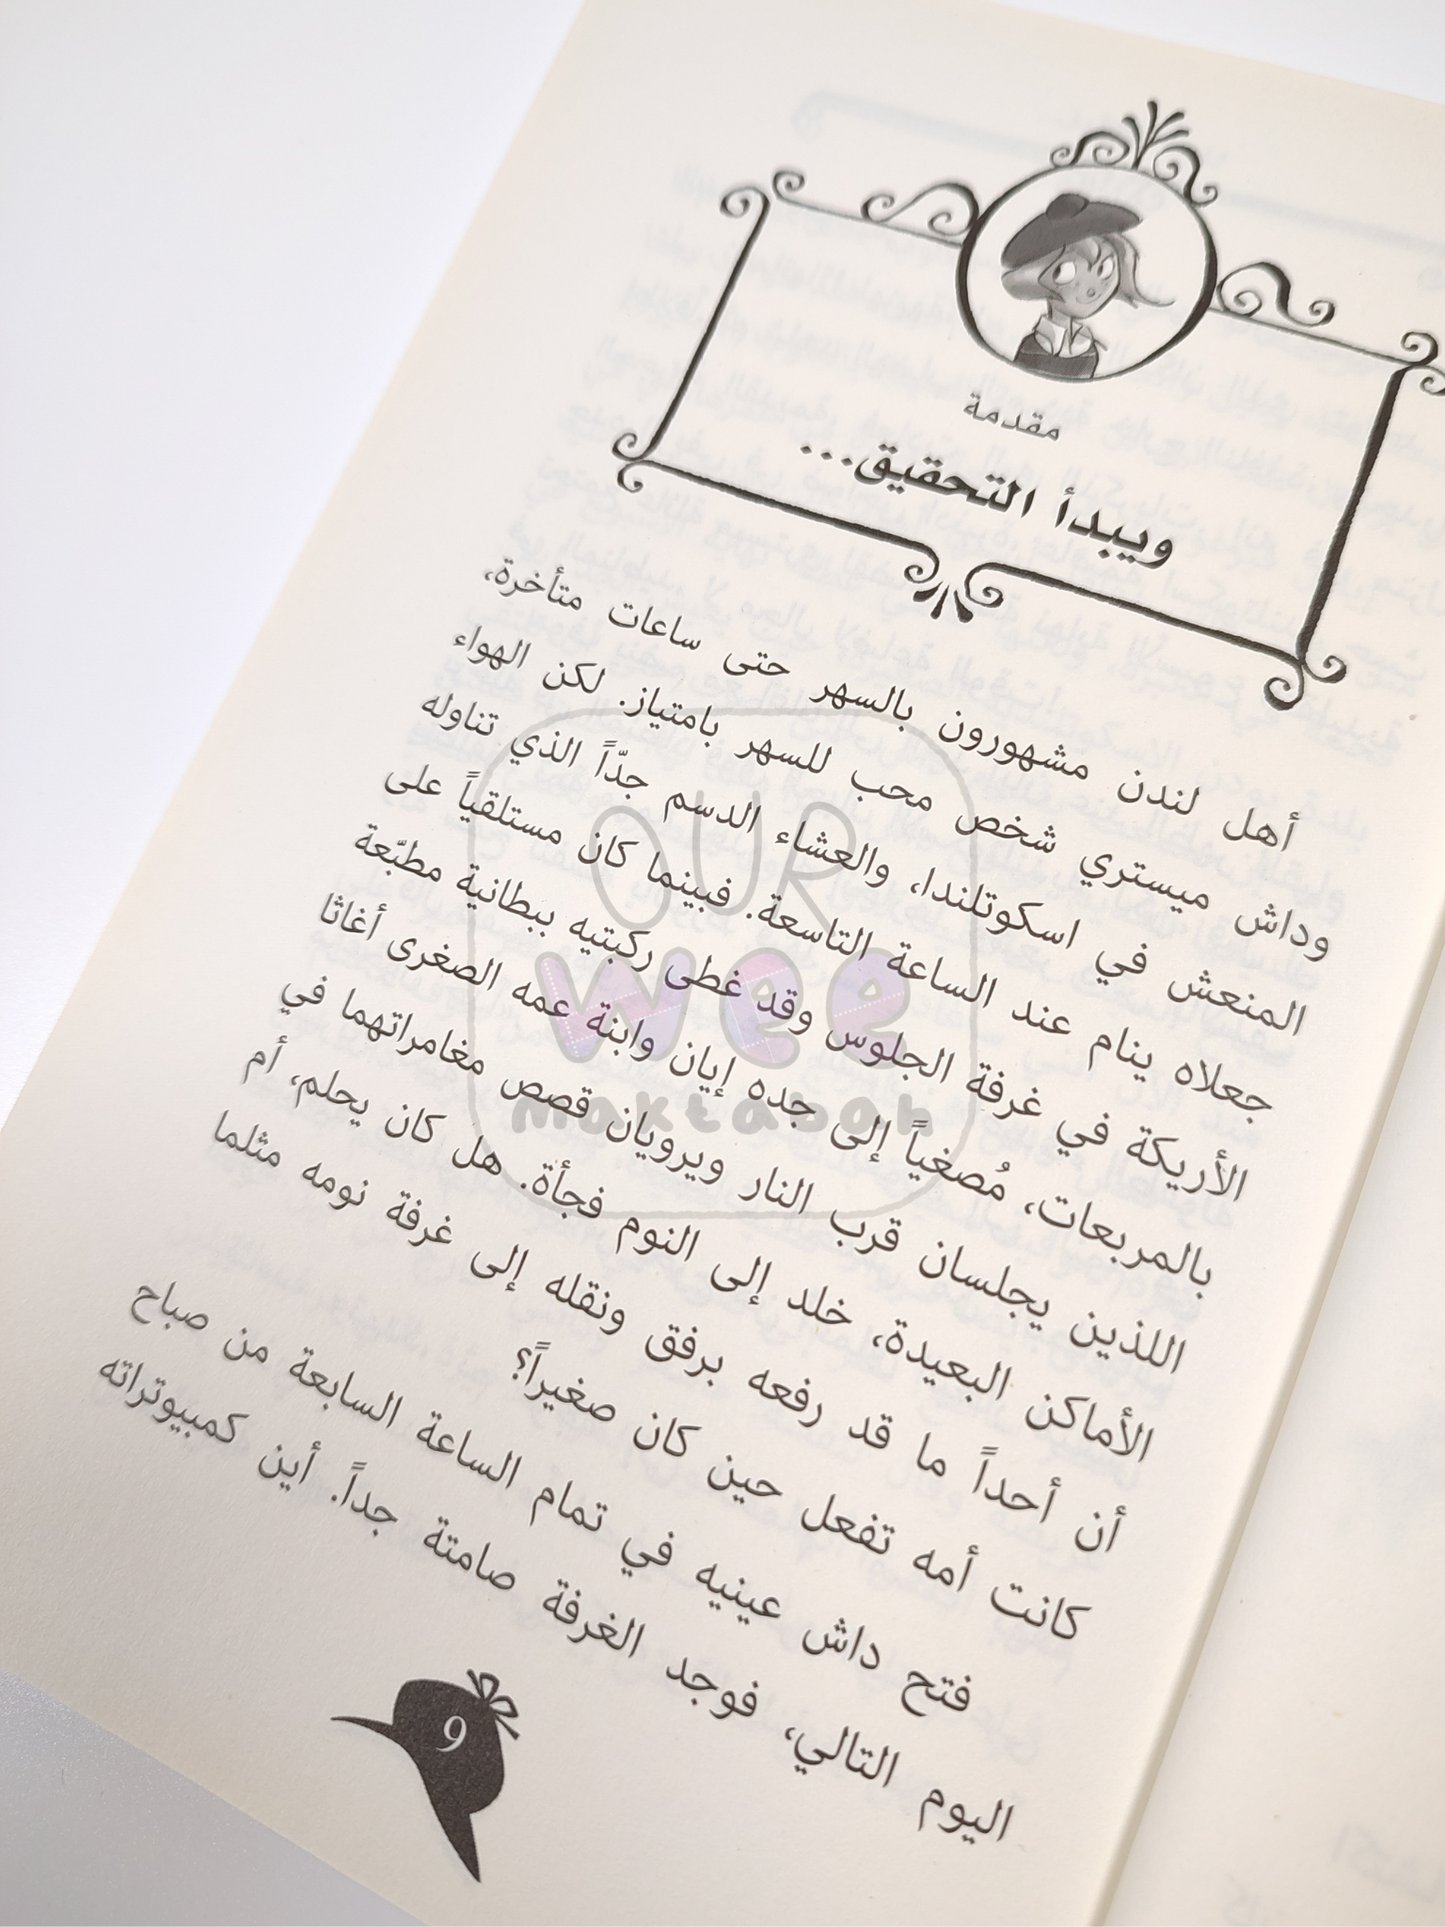 مقدمة
ويبدأ التحقيق...
أهل لندن مشهورون بالسهر حتى ساعات متأخرة،
وداش ميستري شخص محب للسهر بامتياز. لكن الهواء
المنعش في اسكوتلندا، والعشاء الدسم جدّاً الذي تناوله
جعلاه ينام عند الساعة التاسعة. فبينما كان مستلقياً على
الأريكة في غرفة الجلوس وقد غطى ركبتيه ببطانية مطبّعة
بالمربعات، مُصغياً إلى جده إيان وابنة عمه الصغرى أغاثا
اللذين يجلسان قرب النار ويرويان قصص مغامراتهما في
الأماكن البعيدة، خلد إلى النوم فجأة. هل كان يحلم، أم
أن أحداً ما قد رفعه برفق ونقله إلى غرفة نومه مثلما
كانت أمه تفعل حين كان صغيراً؟
فتح داش عينيه في تمام الساعة السابعة من صباح
اليوم التالي، فوجد الغرفة صامتة جداً. أين كمبيوتراته
9
OUR
wee
maktabah